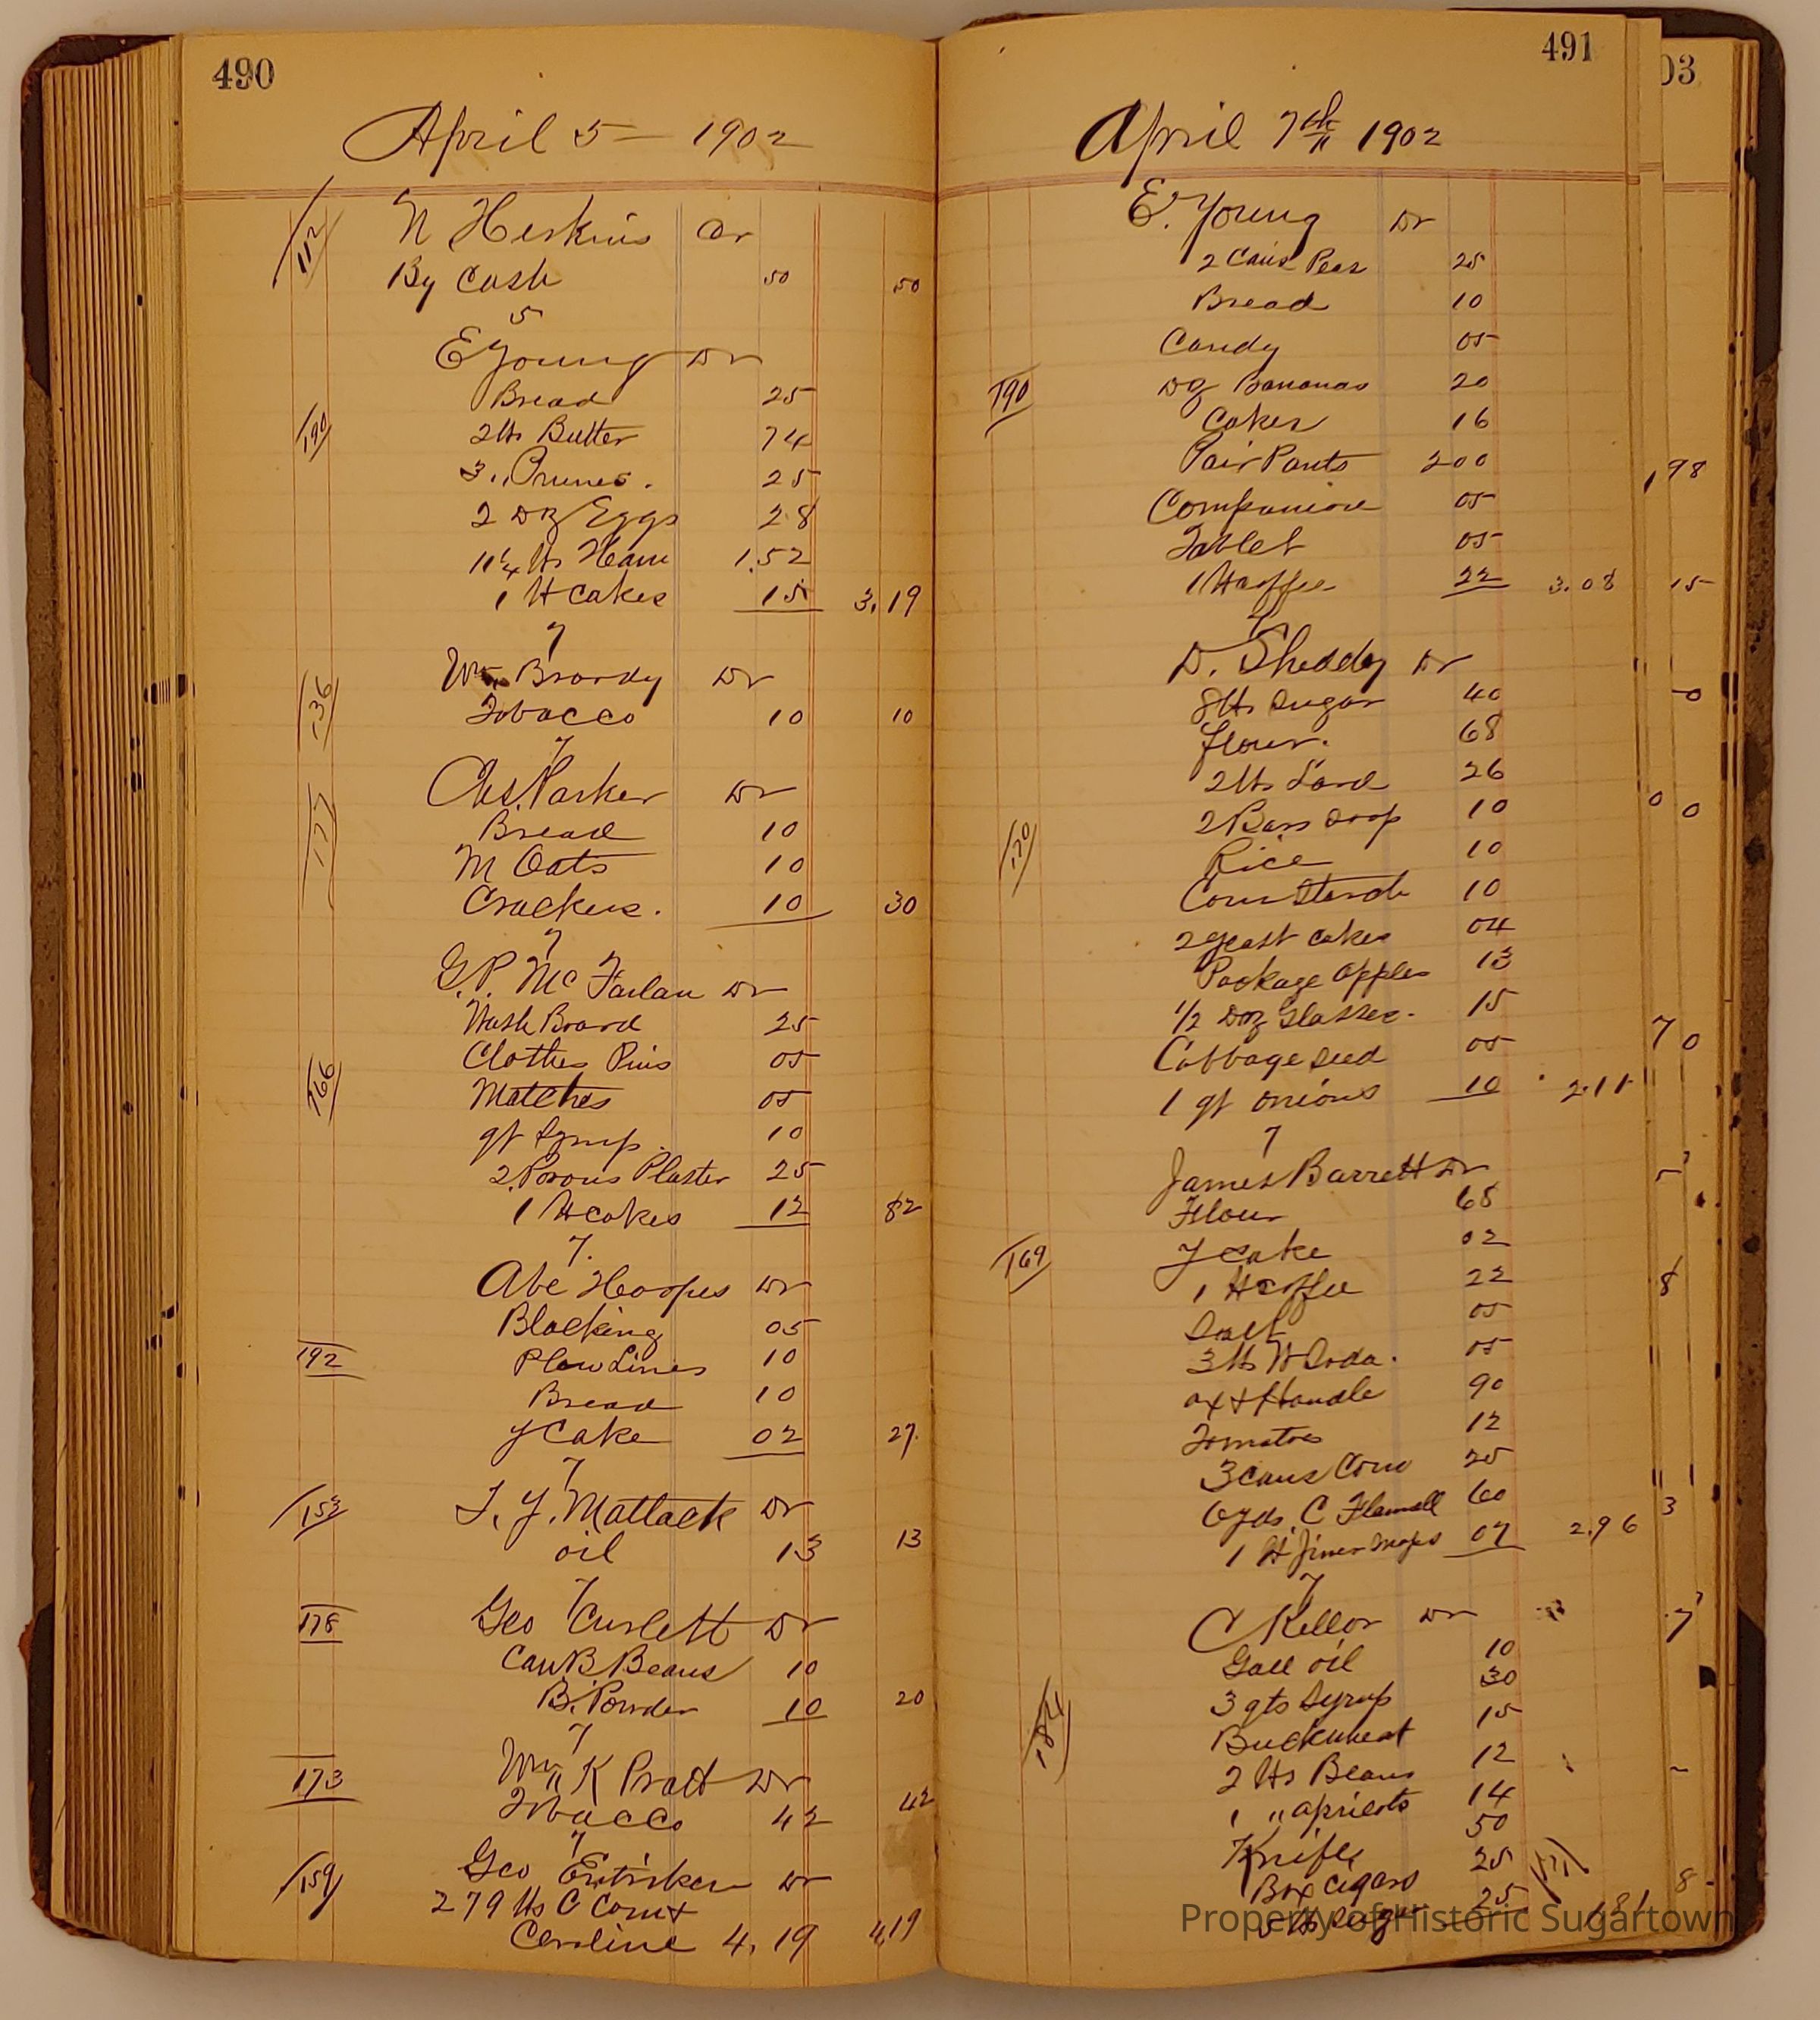 490
April 5 — 1902
112
N Herkins Cr
By Cash 50 50
5
E Young Dr
Bread 25
190
2 lbs Butter 74
3 " Prunes. 25
2 Dz Eggs 28
11 1/4 lbs Ham 1.52
1 lb Cakes 15 3.19
7
Wm. Brardy Dr
136
Tobacco 10 10
7
Chs. Parker Dr
177
Bread 10
M Oats 10
Crackers. 10 30
7
G. P. Mc Farlan Dr
Wash Board 25
Clothes Pins 05
166
Matches 05
qt Syrup 10
2 Porous Plaster 25
1 lb cakes 12 82
7.
Abe Hoopes Dr
Blacking 05
192
Plow Lines 10
Bread 10
y Cake 02 27.
7
153
T. J. Matlack Dr
oil 13 13
7
178
Geo Curlett Dr
Can B. Beans 10
B. Powder 10 20
7
173
Wm K Pratt Dr
Tobacco 42 42
7
159
Geo Entriken Dr
279 lbs C Corn +
Ceraline 4.19 4.19
491
April 7th 1902
E. Young Dr
2 Cans Peas 25
Bread 10
Candy 05
190
Dz Bananas 20
Cakes 16
Pair Pants 200
Companion 05
Tablet 05
1 lb coffee 22 3.08
7
D. Sheddy Dr
8 lbs Sugar 40
flour. 68
2 lbs Lard 26
2 Bars Soap 10
170
Rice 10
Corn Starch 10
2 yeast cakes 04
Package apples 13
1/2 Doz Glasses. 15
Cabbage seed 05
1 qt onions 10 2.11
7
James Barrett Dr
Flour 68
169
y cake 02
1 lb coffee 22
Salt 05
3 lbs W Soda. 05
ax + Handle 90
Tomatoes 12
3 cans Corn 25
6 yds. C Flannell 60
1 lb Jinersnaps 07 2.96
7
C Kellor Dr
Gall oil 10
3 qts Syrup 30
184
Buckwheat 15
2 lbs Beans 12
1 " apricots 14
Knife 50
Box cigars 25
5 lbs sugar 25 1.81
03
Property of Historic Sugartown